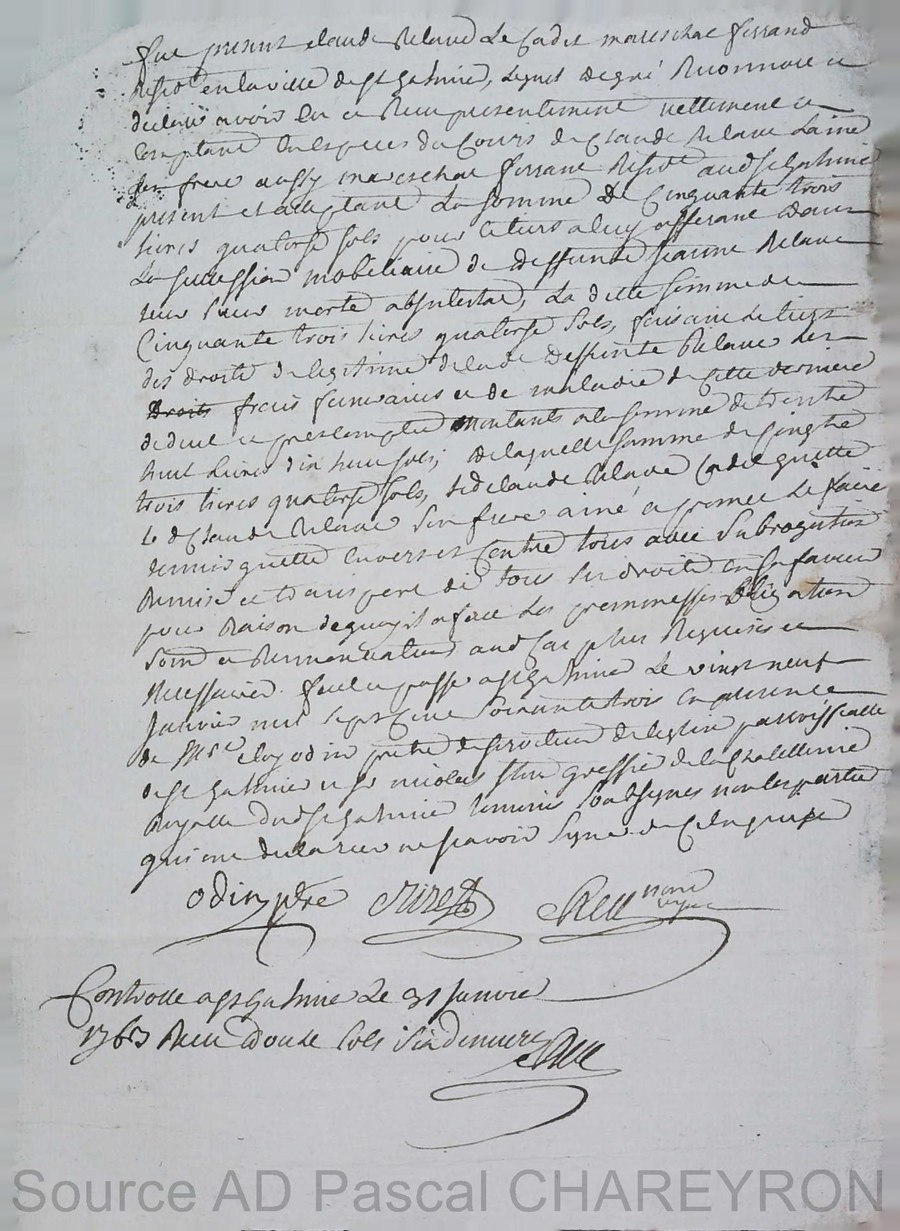 fut present claude Relave Le Cadet mareschal ferrand
Resid.t en la ville de st Galmier, Lequel de gré Reconnoit et
declare avoir Eu et Receu presentement Rellement et
Comptant En especes du Cours de Claude Relave Lainé
son frere aussy mareschal ferrant Resid.t aud st Galmier
present et acceptant La somme De Cinquante trois
livres quatorse sols pour le tiers a luy afferant dans
La succession mobiliaire de deffunte jeanne Relave
leur sœur morte abintestat, La ditte somme de
Cinquante trois livres quatorse sols, faisant Le tiers
des droits de legitime de lade deffunte Relave les
Droits frais funeraires et de maladie de Cette derniere
deduit et precomptés montants a la somme de trente
huit Livres dix huit sols, de laquelle somme de Cinqte
trois livres quatorse sols, led claude Relave Cadet quitte
Le d Claude Relave son frere ainé et promet Le faire
tenir quitte envers et Contre tous avec subrogation
Remise et transport de tous ses droits En sa faveur
pour Raison de quoy il a fait Les promesses obligation
soum et Renonciation aud cas plus Requises et
Necessaires. fait et passé a st Galmier Le vingt neuf
Janvier mil sept Cent soixante trois En presence
de Mre eloy odin pretre de l'eglise parroissialle
de st Galmier et sr nicolas greffier de la Chatellenie
Royalle dud st Galmier temoins soussignes non les parties
qui ont declaré ne scavoir signer de Ce Enquis
odin ptre
Contrôlé a st Galmier Le 31 Janvier
1763 Receu douze sols six deniers